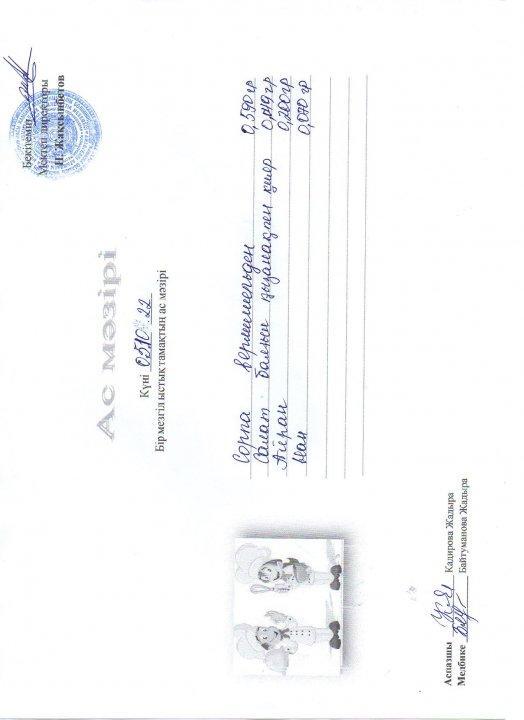 Бекітемін
Мектеп директоры
Н. Жақсынбетов
Ас мәзірі
Күні 05.10.22
Бір мезгіл ыстық тамақтың ас мәзірі
Сорпа вермишельден 0,590 гр
Салат: балғын қызанақпен қияр 0,049 гр
Айран 0,200 гр
Нан 0,070 гр
Аспазшы Кадирова Жадыра
Медбике Байтуманова Жадыра